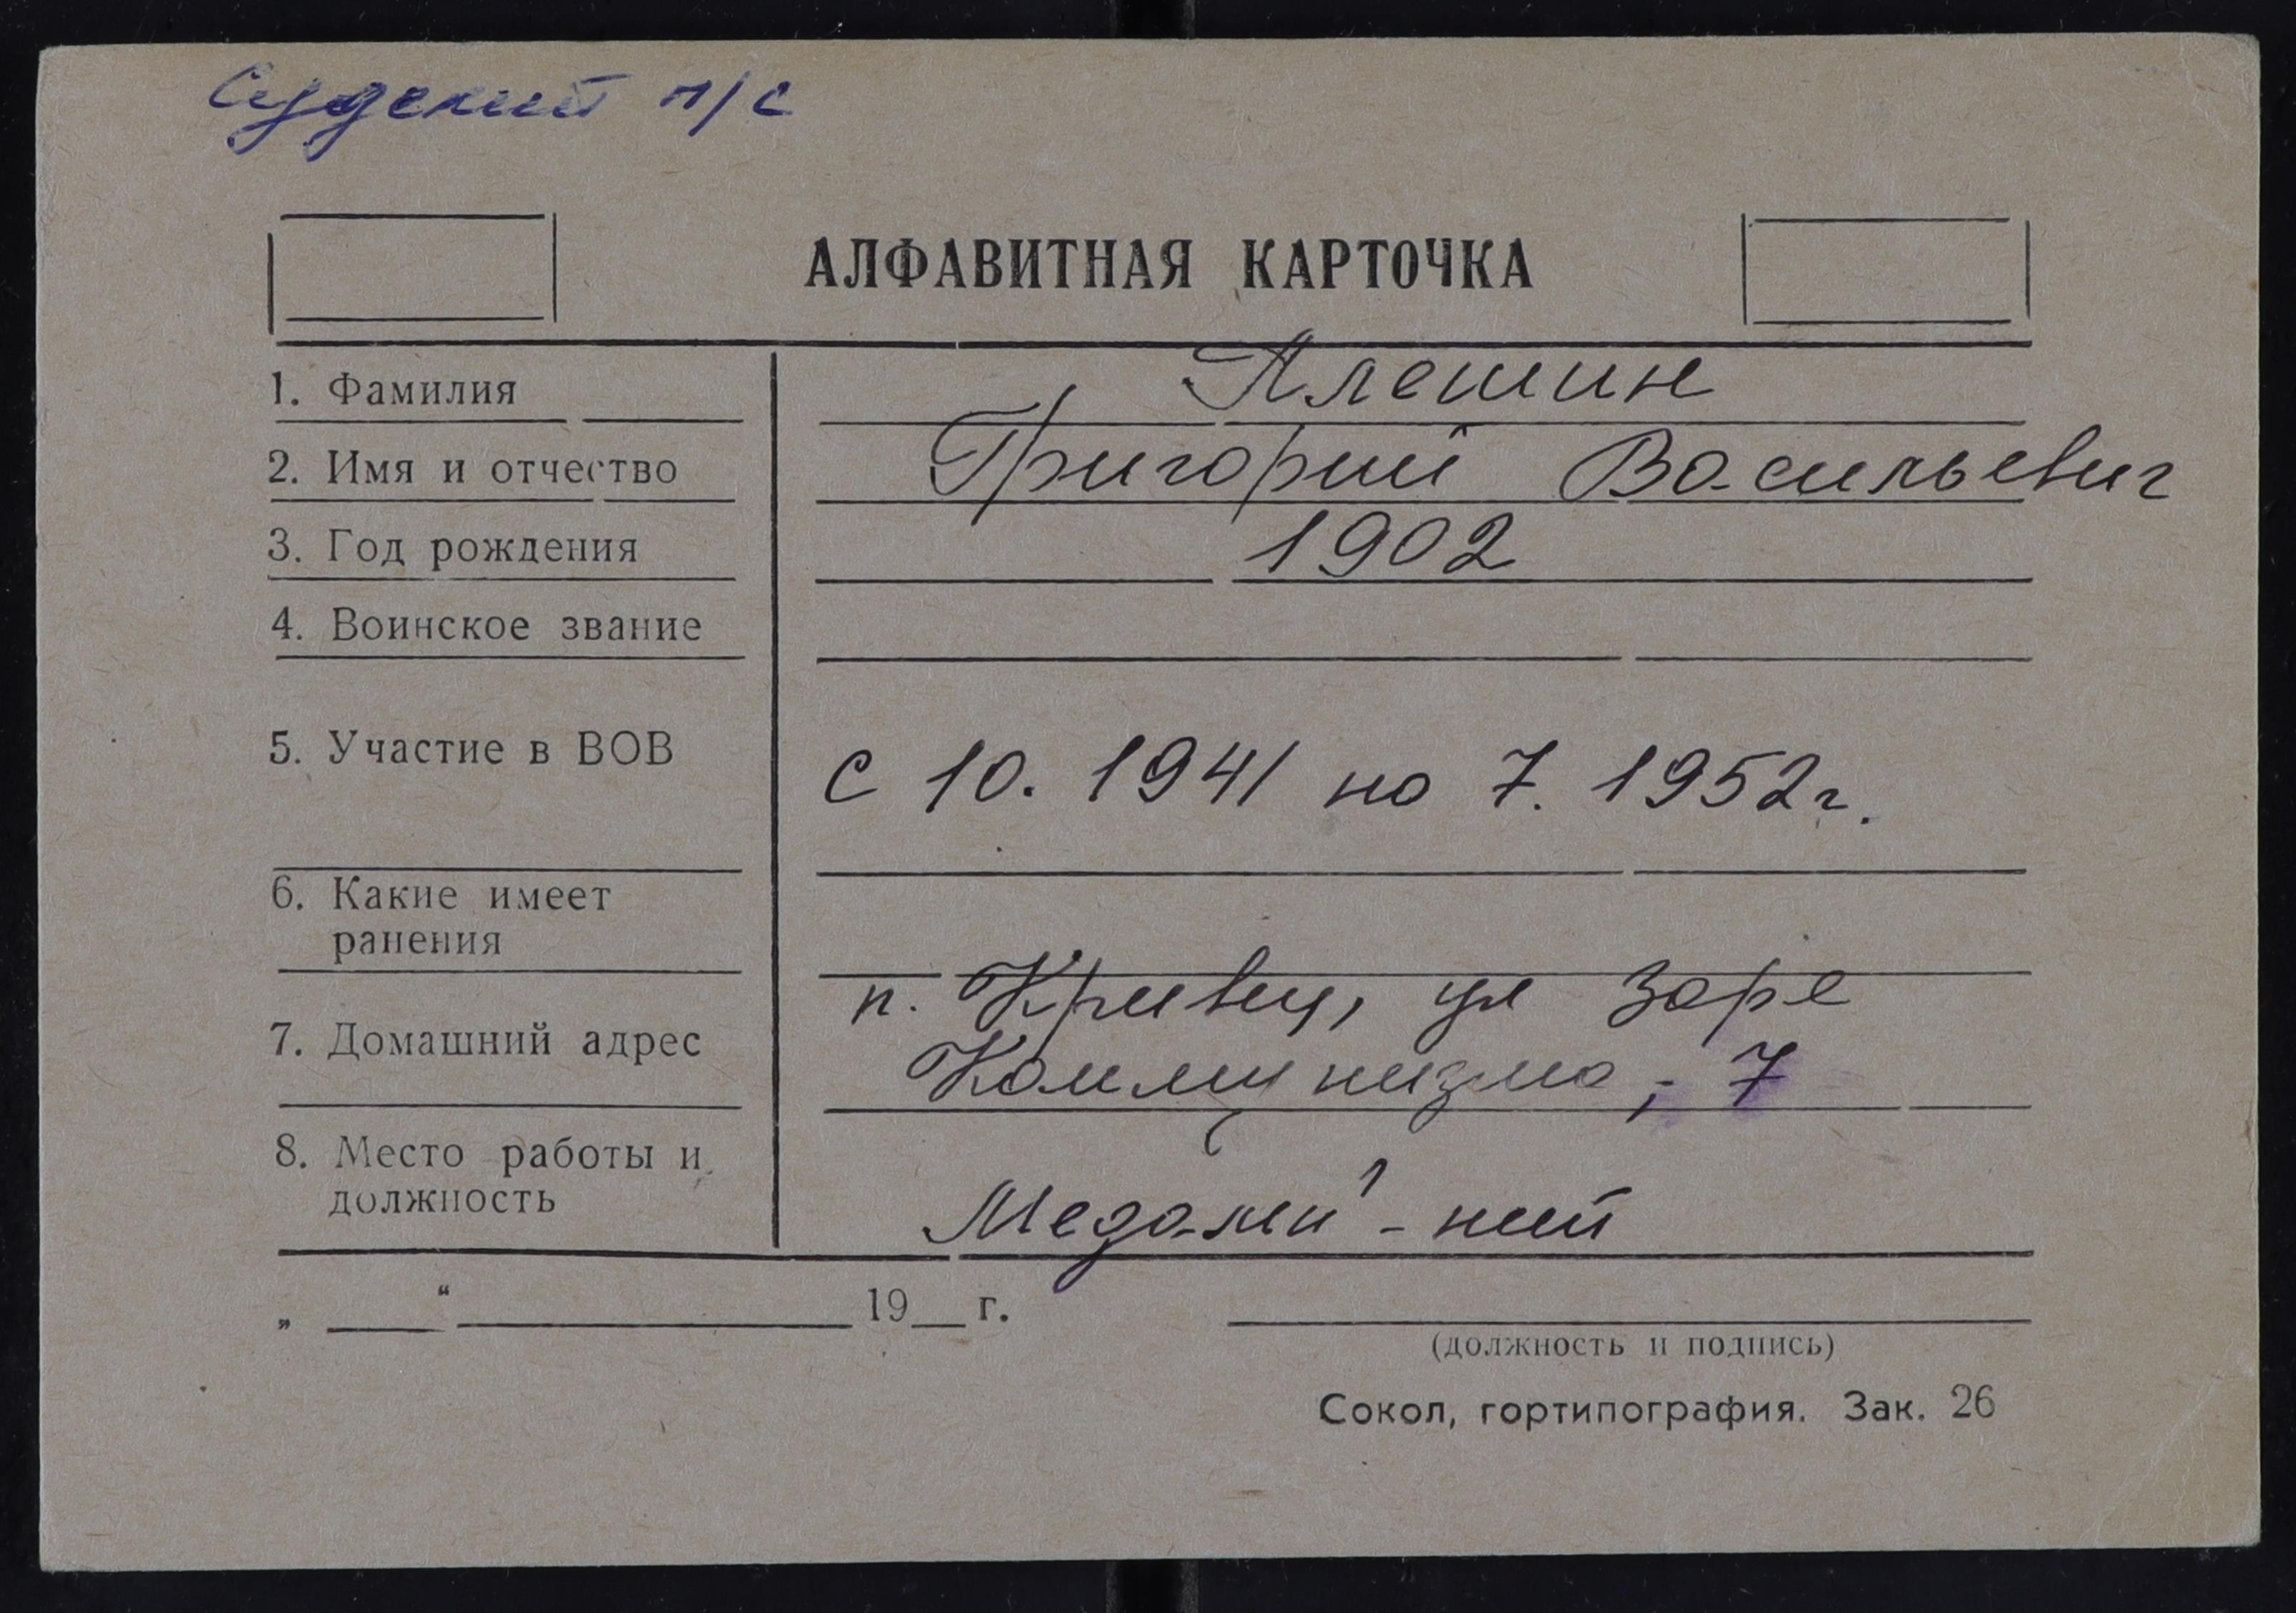 Судский п/с
АЛФАВИТНАЯ КАРТОЧКА
1. Фамилия Алешин
2. Имя и отчество Григорий Васильевич
3. Год рождения 1902
4. Воинское звание
5. Участие в ВОВ с 10. 1941 по 7. 1952г.
6. Какие имеет
ранения
п. Кривец, ул Заря
7. Домашний адрес Коммунизма, 7
8. Место работы и
должность
„ “ 19 г.
(должность и подпись)
Сокол, гортипография. Зак. 26